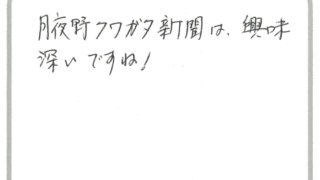 月夜野クワガタ新聞は、興味
深いですね!